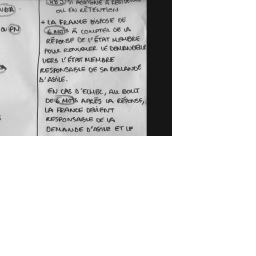 OU EN RÉTENTION
• LA FRANCE DISPOSE DE
OU EN
6 MOIS À COMPTER DE LA
RÉPONSE DE L'ÉTAT MEMBRE
POUR RENVOYER LE DEMANDEUR
VERS L'ÉTAT MEMBRE
RESPONSABLE DE SA DEMANDE
D'ASILE.
EN CAS D'ECHEC, AU BOUT
DE 6 MOIS APRÈS LA RÉPONSE,
LA FRANCE DEVIENT
RESPONSABLE DE LA
DEMANDE D'ASILE ET LE